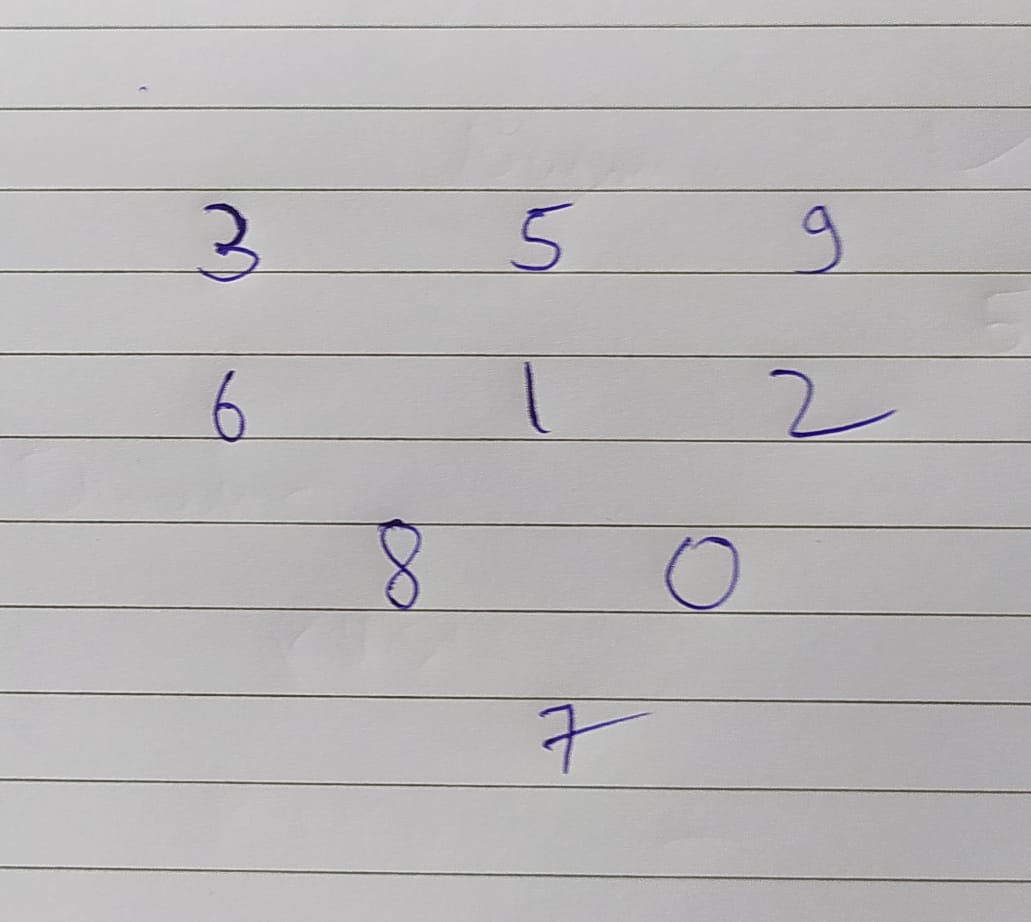 3 5 9
6 1 2
8 0
7